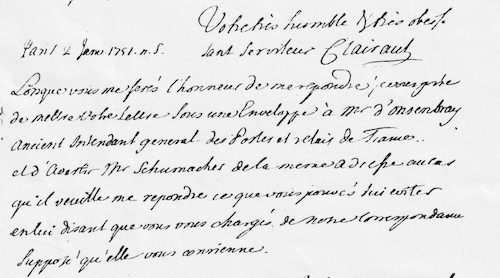 Votre très humble & très obeis-
Paris 2 Janv. 1751. n.S. sant Serviteur Clairaut
Lorsque vous me ferés l'honneur de me repondre, je vous prie
de mettre votre lettre sous une Enveloppe à Mr d'onsenbray
Ancient Intendant general des Postes et relais de France.
et d'Avertir Mr Schumacher de la meme adresse au cas
qu'il veuille me repondre ce que vous pouvés lui eviter
en lui disant que vous vous chargés de notre correspondance
supposé qu'elle vous convienne.